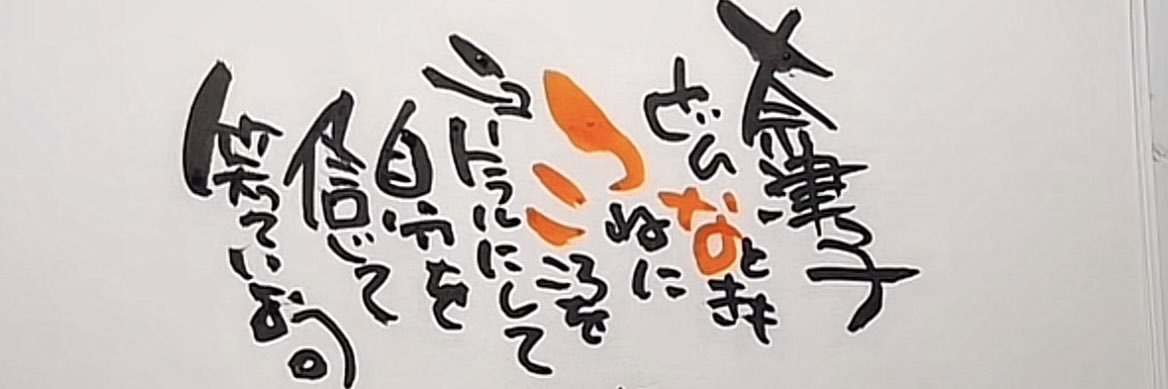 奈津子
どんなときも
つねに
こころを
ニュートラルにして
自分を
信じて
笑っていよう。